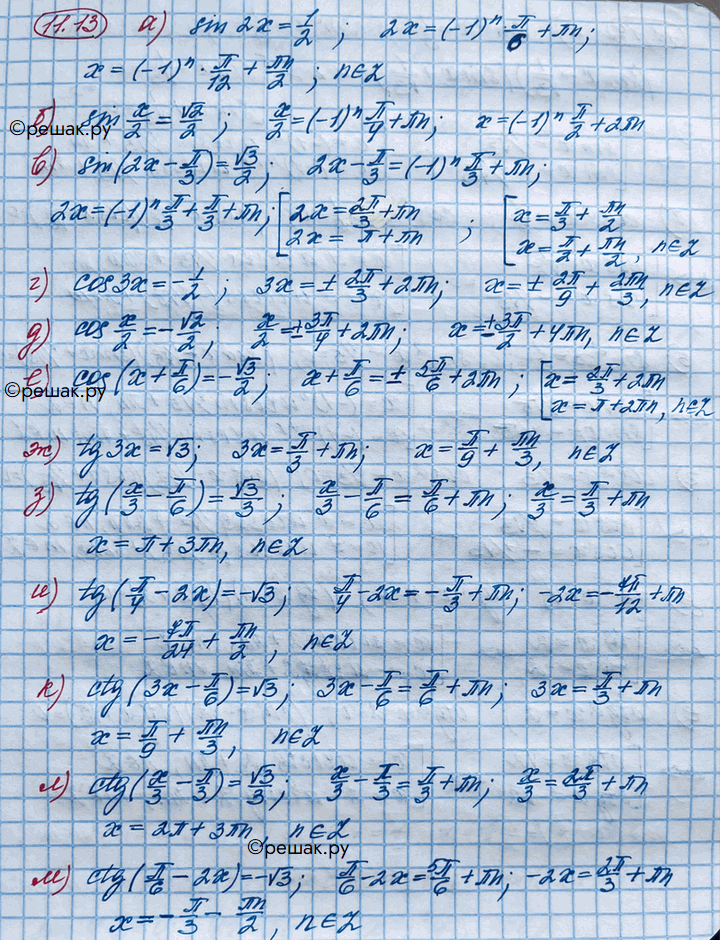 11.13 а) sin 2x = 1/2 ; 2x = (-1)ⁿ · π/6 + πn;
x = (-1)ⁿ · π/12 + πn/2 ; n∈Z
б) sin x/2 = √2/2 ; x/2 = (-1)ⁿ π/4 + πn; x = (-1)ⁿ π/2 + 2πn
©решак.ру
в) sin(2x - π/3) = √3/2 ; 2x - π/3 = (-1)ⁿ π/3 + πn;
2x = (-1)ⁿ π/3 + π/3 + πn; [ 2x = 2π/3 + πn ; [ x = π/3 + πn/2
2x = π + πn x = π/2 + πn/2, n∈Z
г) cos 3x = -1/2 ; 3x = ± 2π/3 + 2πn; x = ± 2π/9 + 2πn/3, n∈Z
д) cos x/2 = -√2/2 ; x/2 = ± 3π/4 + 2πn; x = ± 3π/2 + 4πn, n∈Z
е) cos(x + π/6) = -√3/2 ; x + π/6 = ± 5π/6 + 2πn ; [ x = 2π/3 + 2πn
©решак.ру x = π + 2πn, n∈Z
ж) tg 3x = √3; 3x = π/3 + πn; x = π/9 + πn/3, n∈Z
з) tg(x/3 - π/6) = √3/3 ; x/3 - π/6 = π/6 + πn; x/3 = π/3 + πn
x = π + 3πn, n∈Z
и) tg(π/4 - 2x) = -√3; π/4 - 2x = -π/3 + πn; -2x = -7π/12 + πn
x = -7π/24 + πn/2, n∈Z
к) ctg(3x - π/6) = √3; 3x - π/6 = π/6 + πn; 3x = π/3 + πn
x = π/9 + πn/3, n∈Z
л) ctg(x/3 - π/3) = √3/3 ; x/3 - π/3 = π/3 + πn; x/3 = 2π/3 + πn
x = 2π + 3πn, n∈Z
©решак.ру
м) ctg(π/6 - 2x) = -√3; π/6 - 2x = 5π/6 + πn; -2x = 2π/3 + πn
x = -π/3 - πn/2, n∈Z